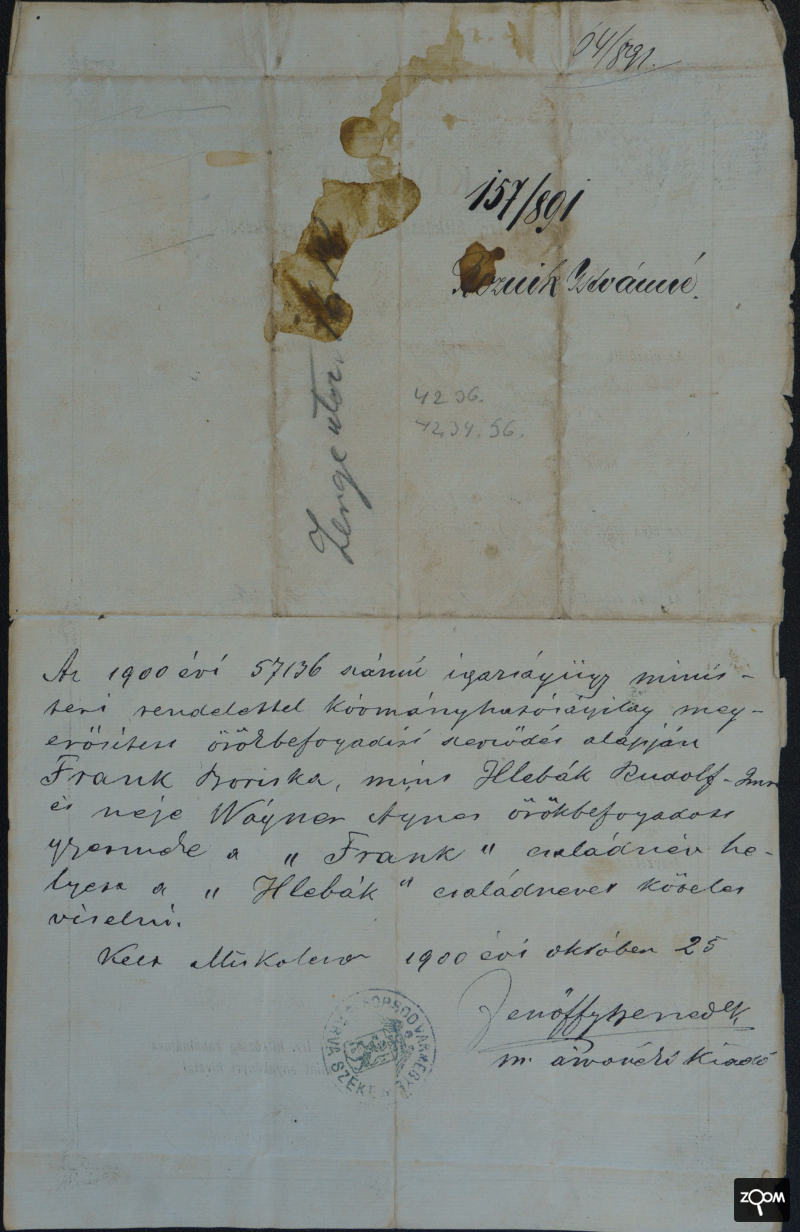 64/891.
157/891
Roznik Istvánné.
4236.
4234.56.
Az 1900 évi 57136 számú igazságügy minis-
teri rendelettel kormányhatóságilag meg-
erősitett örökbefogadási szerződés alapján
Frank Boriska, mint Hlebák Rudolf-Imre
és neje Wágner Ágnes örökbefogadott
gyermeke a „Frank" családnév he-
lyett a „Hlebák" családnevet köteles
viselni.
Kelt Miskolczon 1900 évi október 25
Jenőffy
m. árvaszéki kiadó
BORSOD VÁRMEGYE
ÁRVA SZÉKE
ZOOM